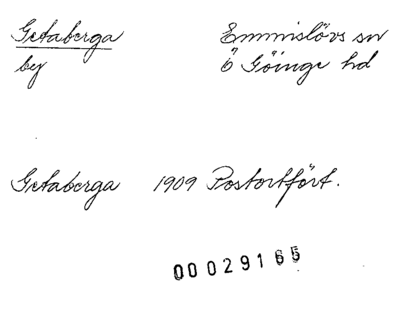 Getaberga Emmislövs sn
by Ö Göinge hd
Getaberga 1909 Postortfört.
00029165